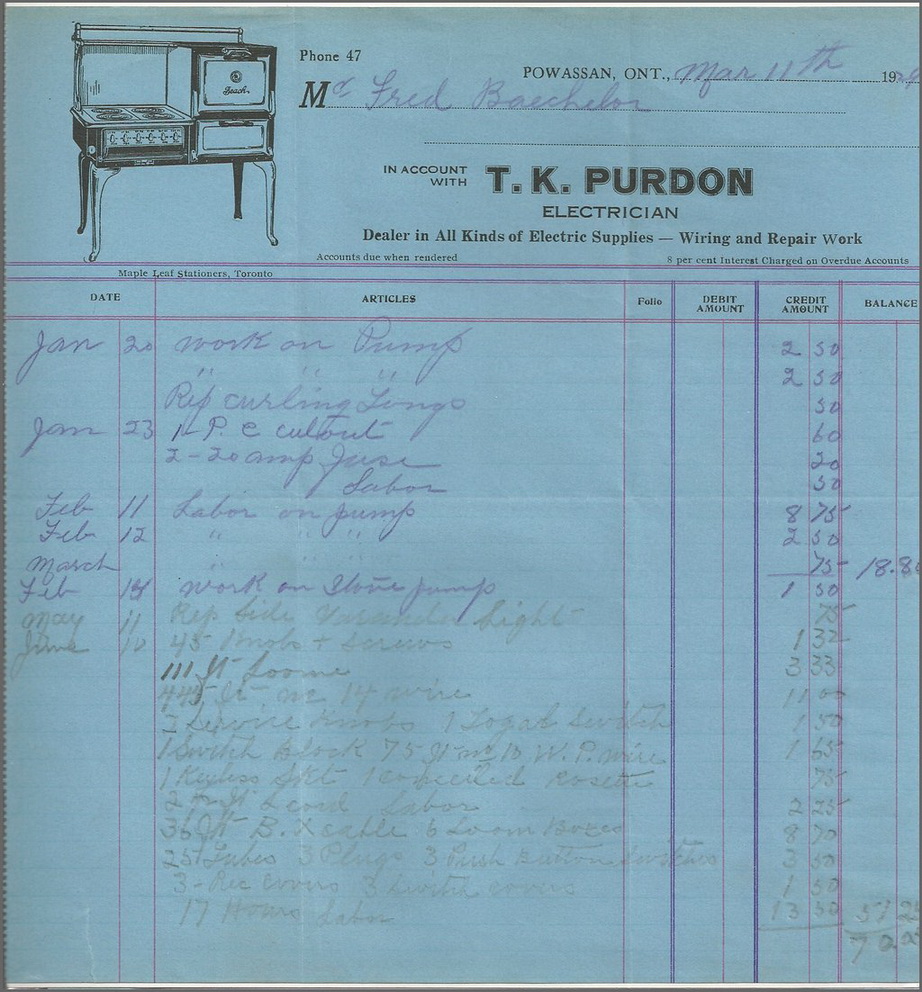 Beach
Phone 47
POWASSAN, ONT., Mar 11th 19
Mr Fred Baechelor
IN ACCOUNT WITH T. K. PURDON
ELECTRICIAN
Dealer in All Kinds of Electric Supplies — Wiring and Repair Work
Accounts due when rendered 8 per cent Interest Charged on Overdue Accounts
Maple Leaf Stationers, Toronto
DATE ARTICLES Folio DEBIT AMOUNT CREDIT AMOUNT BALANCE
Jan 20 work on Pump 2 50
" " " 2 50
Rep curling Tongs 50
Jan 23 1 P. C cutout 60
2-20 amp fuse 20
Labor 50
Feb 11 Labor on pump 8 75
Feb 12 " " " 2 50
March " " " 75 18.8
Feb 14 work on Stove pump 1 50
May 11 Rep Side Varandar Light 75
June 10 45 Knobs + screws 1 32
111 ft Loome 3 33
445 ft no 14 wire 11 00
2 Service Knobs 1 Switch 1 50
1 Switch Block 75 ft no 10 W. P. wire 1 65
1 Keyless Skt 1 concerled Rosette 75
ft cord Labor 2 25
36 ft B. X cable 6 Loom Boxes 8 70
25 Tubes 3 Plugs 3 Push Button Switches 3 50
3-Rec covers 3 switch covers 1 50
17 Hours Labor 13 50 51 2
7